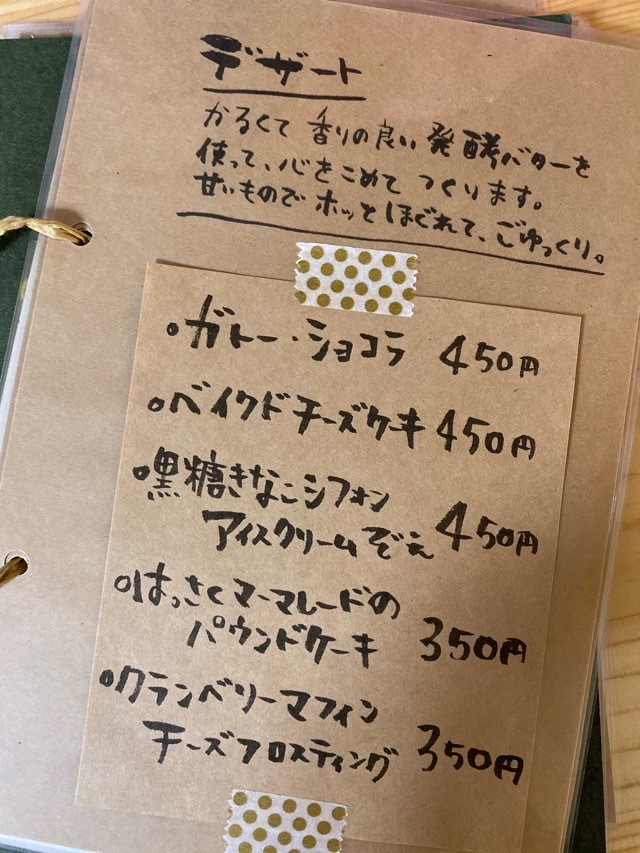 デザート
かるくて 香りの良い 発酵バターを
使って、心をこめて つくります。
甘いもので ホッと ほぐれて、ごゆっくり。
・ガトー・ショコラ 450円
・ベイクドチーズケーキ 450円
・黒糖きなこシフォン
アイスクリームぞえ 450円
・はっさくマーマレードの
パウンドケーキ 350円
・クランベリーマフィン
チーズフロスティング 350円